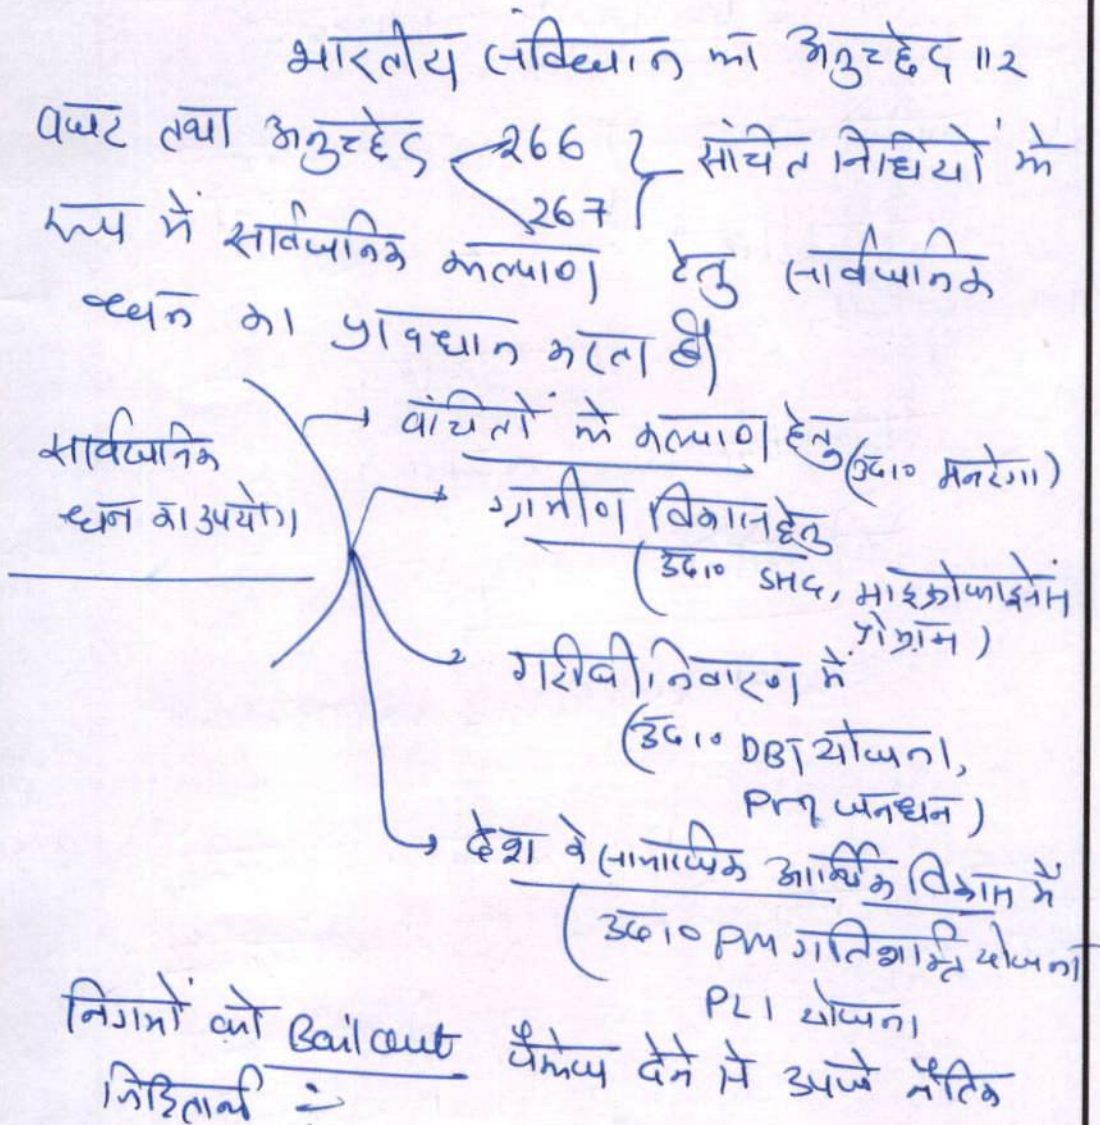 भारतीय संविधान का अनुच्छेद 112
बजट तथा अनुच्छेद 266 267 संचित निधियों के
रूप में सार्वजनिक कल्याण हेतु सार्वजनिक
धन का प्रावधान करता है।
सार्वजनिक
धन का उपयोग
→ वंचितों के कल्याण हेतु (उदा० मनरेगा)
→ ग्रामीण विकास हेतु
(उदा० SHG, माइक्रोफाइनेंस
प्रोग्राम)
→ गरीबी निवारण में
(उदा० DBT योजना,
PM जनधन)
→ देश के सामाजिक आर्थिक विकास में
(उदा० PM गतिशक्ति योजना
PLI योजना
निगमों को Bailout पैकेज देने से उपजे नैतिक
निहितार्थ :-